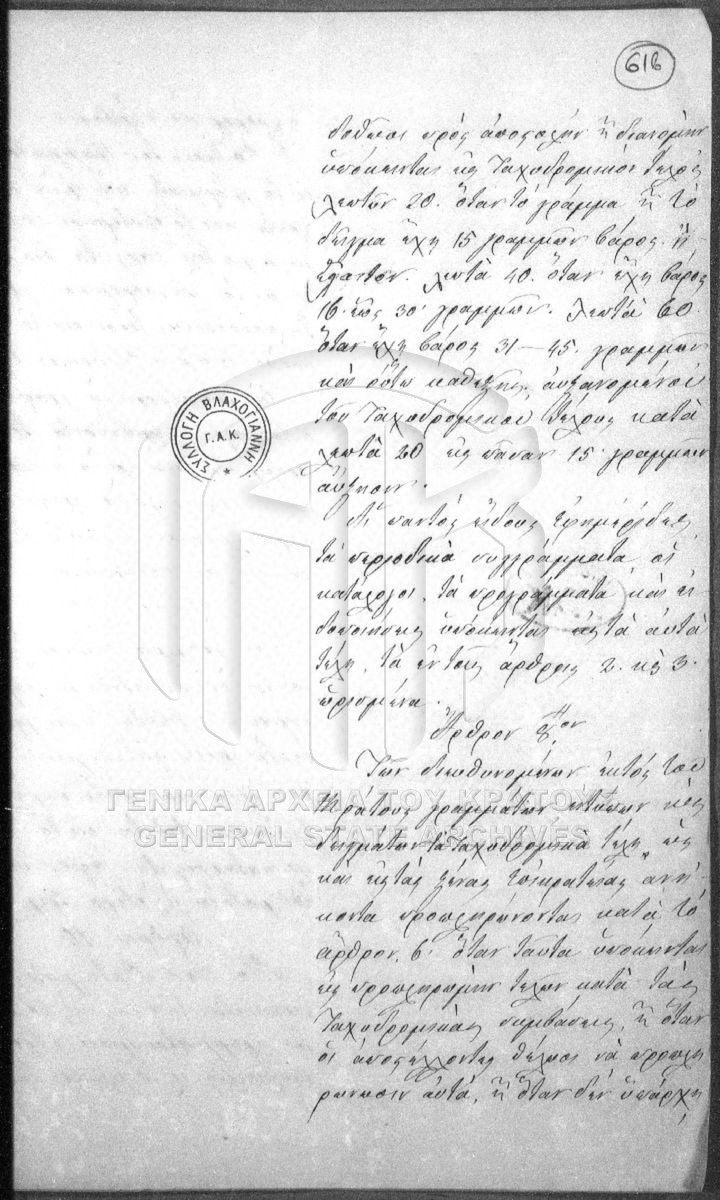 618
δοθῶσι πρὸς ἀποστολὴν ἢ διανομὴν
ὑπόκεινται εἰς ταχυδρομικὸν τέλος
λεπτῶν 20. ὅταν τὸ γράμμα ἢ τὸ
δεῖγμα ἔχῃ 15 γραμμῶν βάρος ἢ
ἔλαττον. λεπτὰ 40. ὅταν ἔχῃ βάρος
16 ἕως 30 γραμμῶν. λεπτὰ 60.
ὅταν ἔχῃ βάρος 31 — 45. γραμμῶν
καὶ οὕτω καθεξῆς, αὐξανομένου
τοῦ ταχυδρομικοῦ τέλους κατὰ
λεπτὰ 20 εἰς πᾶσαν 15 γραμμῶν
αὔξησιν.
Αἱ παντὸς εἴδους ἐφημερίδες
τὰ περιοδικὰ συγγράμματα οἱ
κατάλογοι, τὰ προγράμματα καὶ εἰ-
δοποιήσεις ὑπόκεινται εἰς τὰ αὐτὰ
τέλη, τὰ ἐν τοῖς ἄρθροις 2. καὶ 3.
ὡρισμένα.
Ἄρθρον 8ον
Τῶν διευθυνομένων ἐκτὸς τοῦ
Κράτους γραμμάτων ἐντύπων καὶ
δειγμάτων τὰ ταχυδρομικὰ τέλη ὡς
καὶ εἰς τὰς ξένας ἐπικρατείας ἀνή-
κοντα προπληρώνονται κατὰ τὸ
ἄρθρον 6 ὅταν ταῦτα ὑπόκεινται
εἰς προπληρωμὴν τελῶν κατὰ τὰς
ταχυδρομικὰς συμβάσεις, ἢ ὅταν
οἱ ἀποστέλλοντες θέλωσι νὰ προπλη
ρώνωσιν αὐτά, ἢ ὅταν δὲν ὑπάρχῃ
ΣΥΛΛΟΓΗ ΒΛΑΧΟΓΙΑΝΝΗ
Γ.Α.Κ.
ΓΕΝΙΚΑ ΑΡΧΕΙΑ ΤΟΥ ΚΡΑΤΟΥΣ
GENERAL STATE ARCHIVES